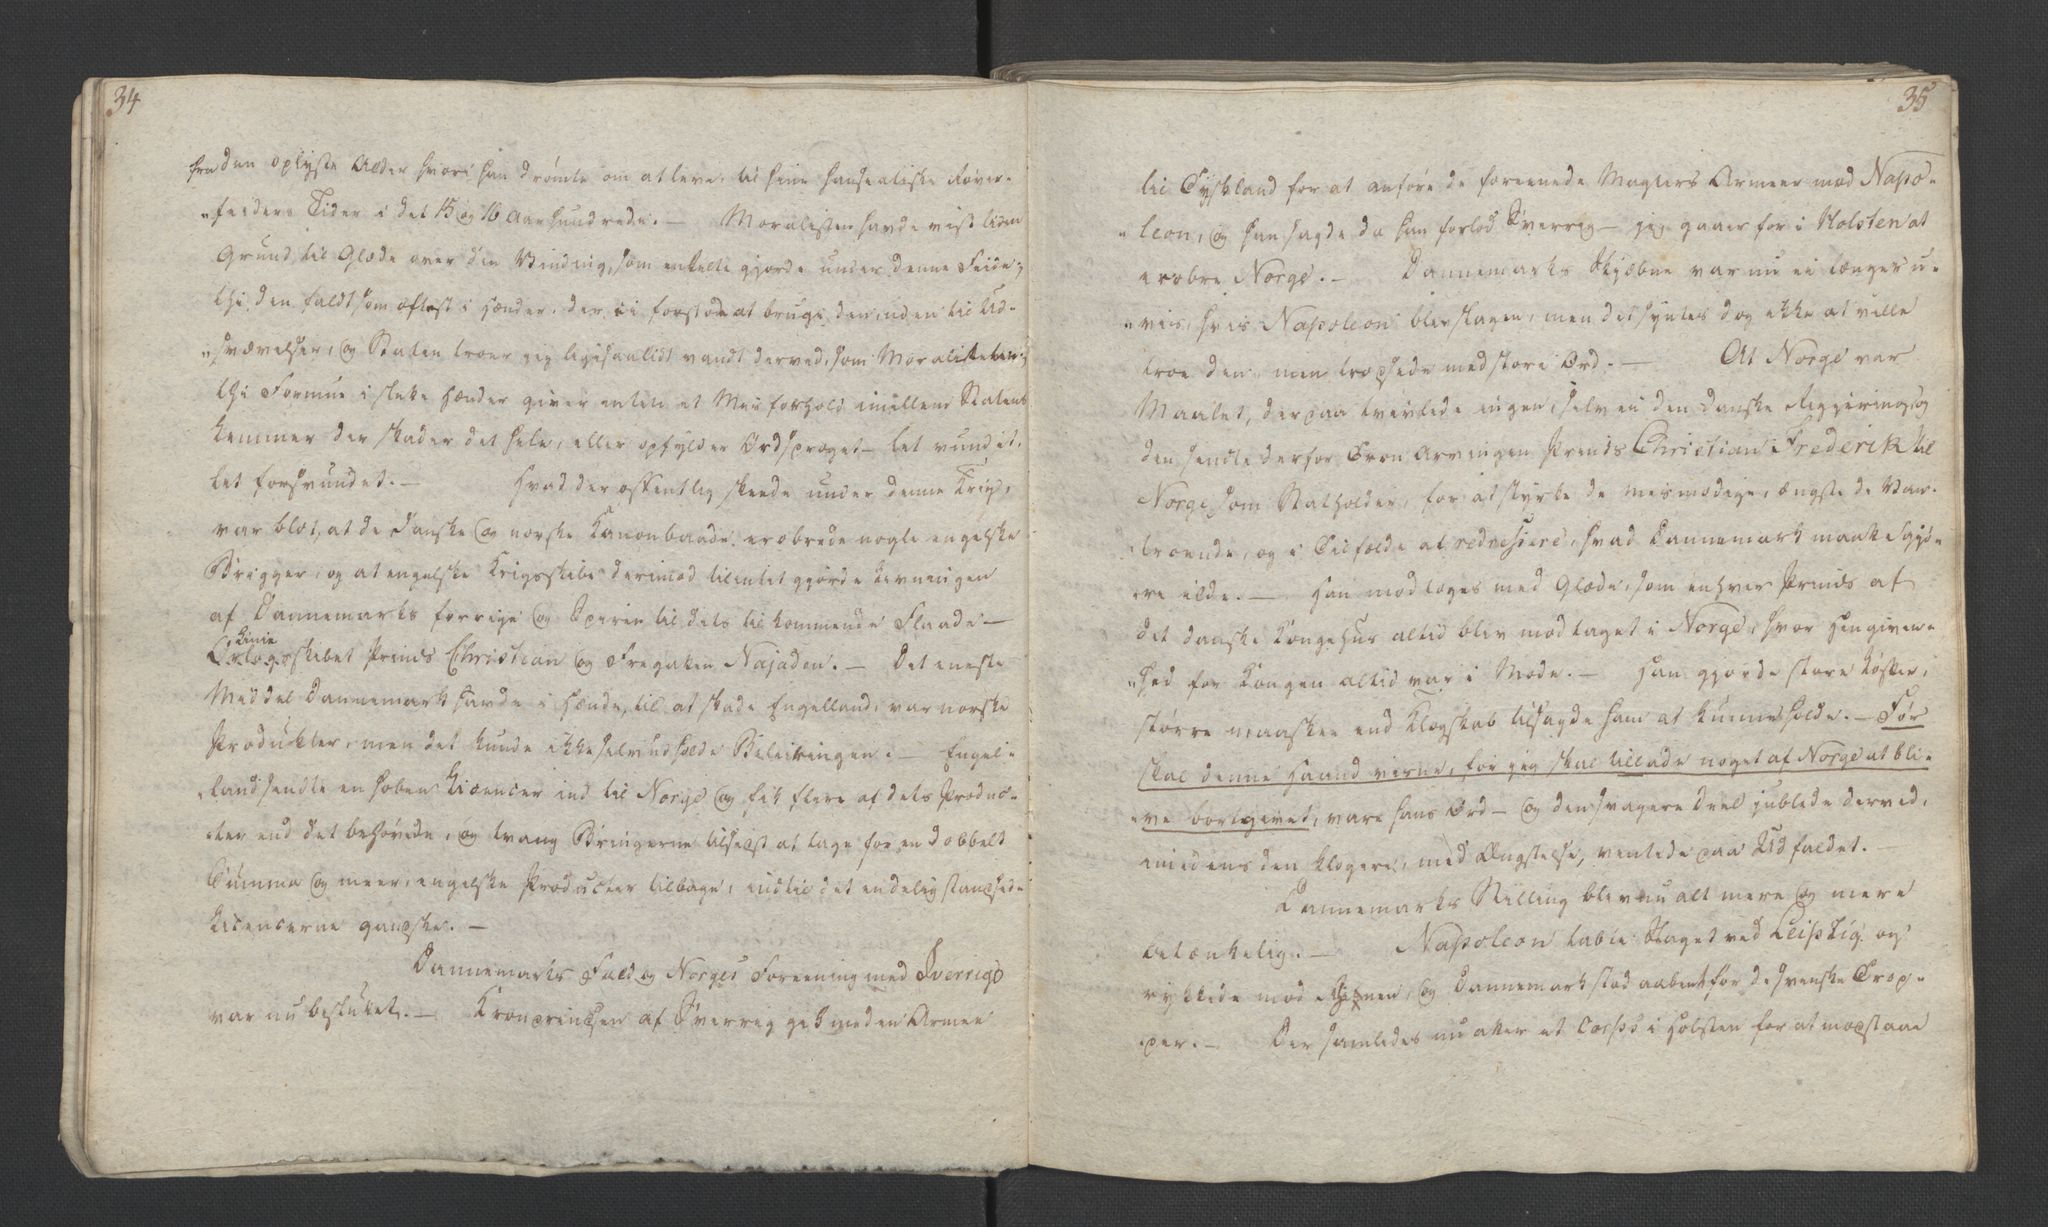 34
fra den oplyste Alder hvori han drømte om at leve, til hine hanseatiske Røver-
"feiders Tider i det 15 og 16 Aarhundrede. — Moralisten havde vist liden
Grund til Glæde over den Vinding, som enkelte gjorde under denne Feide;
thi den faldt som oftest i Hænder, der ei forstod at bruge den, uden til Ud-
"svævelser, og Staten troer jeg ligesaalidt vandt derved, som Moraliteten;
thi Formue i slette Hænder giver enten et Misforhold imellem Statens
Lemmer der skader det hele, eller opfylder Ordsproget — let vundet,
let forsvundet. — Hvad der offentlig skeede under denne Krig,
var blot, at de danske og norske Kanonbaade erobrede nogle engelske
Brigger, og at engelske Krigsskibe derimod tilintet gjorde Levningen
af Dannemarks forrige og Spiren til dets tilkommende Flaade —
Linie
Orlogsskibet Prinds Christian og Fregatten Najaden. — Det eneste
Middel Dannemark havde i Hænde, til at skade Engelland, var norske
Produkter, men det kunde ikke selv udholde Beleiringen. — Engel-
"land sendte en Hoben Licencer ind til Norge og fik flere af dets Produc-
"ter end det behøvede, og tvang Bringerne tilsidst at tage for en dobbelt
Summa og meer, engelske Producter tilbage, indtil det endelig standsede
Licencerne ganske. —
Dannemarks Fald og Norges Foreening med Sverrig
var nu besluttet. — Kronprindsen af Sverrig gik med en Armee
35
til Tydskland for at anføre de foreenede Magters Armeer mod Napo-
"leon, og han sagde da han forlod Sverrig — jeg gaaer for i Holsten at
erobre Norge. — Dannemarks Skjæbne var nu ei længer u-
"vis, hvis Napoleon blev slagen, men det syntes dog ikke at ville
troe den, men trodsede med store Ord. — At Norge var
Maalet, derpaa tvivlede ingen, selv ei den danske Regjering, og
den sendte derfor Tron Arvingen Prinds Christian Frederik til
Norge som Statholder, for at styrke de mismodige, ængste de Van-
"troende, og i Tilfælde at redressere, hvad Dannemark maatte gjø-
"re ilde. — Han modtoges med Glæde, som enhver Prinds af
det danske Kongehus altid blev modtaget i Norge, hvor Hengiven-
"hed for Kongen altid var i Mode. — Han gjorde store Løfter,
større maaskee end Klogskab tilsagde ham at kunne holde. — Før
skal denne Haand visne, før jeg skal tillade noget af Norge at bli-
"ve bortgivet, vare hans Ord — og den svagere Deel jublede derved,
imedens den klogere, med Ængstelse, ventede paa Udfaldet. —
Dannemarks Stilling blev nu alt mere og mere
betænkelig. — Napoleon tabte Slaget ved Leipzig og
rykkede mod Rhinen, og Dannemark stod aabent for de svenske Trop-
"per. — Der samledes nu atter et Corps i Holsten for at modstaae